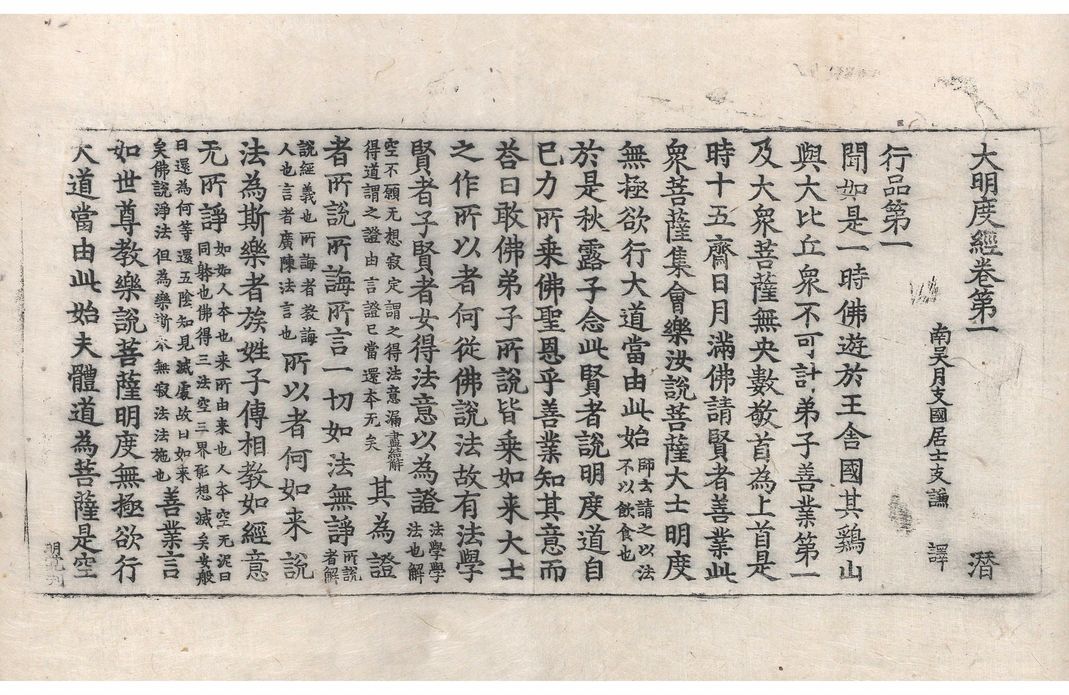 大明度經卷第一 潛
南吴月支國居士支謙 譯
行品第一
聞如是一時佛遊於王舍國其鷄山
與大比丘衆不可計弟子善業第一
及大衆菩薩無央數敬首爲上首是
時十五齋日月滿佛請賢者善業此
衆菩薩集會樂汝説菩薩大士明度
無極欲行大道當由此始師云請之以法不以飲食也
於是秋露子念此賢者説明度道自
已力所乗佛聖恩乎善業知其意而
荅曰敢佛弟子所説皆乗如来大士
之作所以者何從佛説法故有法學
賢者子賢者女得法意以爲證法學學法也解
空不願无想寂定謂之得法意漏盡結解得道謂之證由言證已當還本无矣其爲證
者所説所誨所言一切如法無諍所説者解
説經義也所誨者教誨人也言者廣陳法言也所以者何如来説
法爲斯樂者族姓子傳相教如經意
无所諍如如人本也来所由来也人本空无泥曰同躰也佛得三法空三界想滅矣安般
曰還為何等還五陰知見滅處故曰如来矣佛説淨法但為樂無寂法法施也善業言
如世尊教樂説菩薩明度無極欲行
大道當由此始夫體道爲菩薩是空